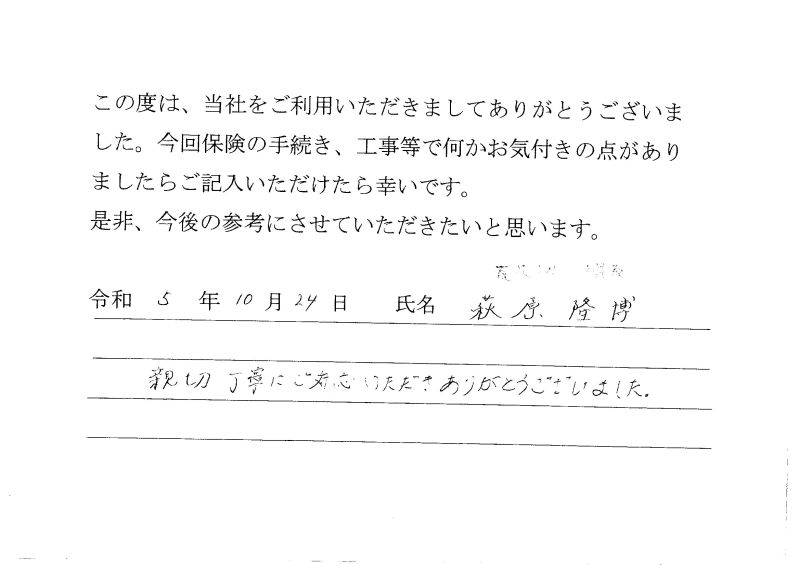 この度は、当社をご利用いただきましてありがとうございま
した。今回保険の手続き、工事等で何かお気付きの点があり
ましたらご記入いただけたら幸いです。
是非、今後の参考にさせていただきたいと思います。
令和 5 年 10 月 24 日 氏名 萩原 隆博
親切 丁寧にご対応いただきありがとうございました。